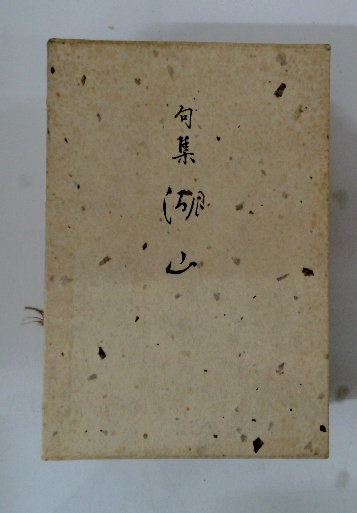 句集
湖山